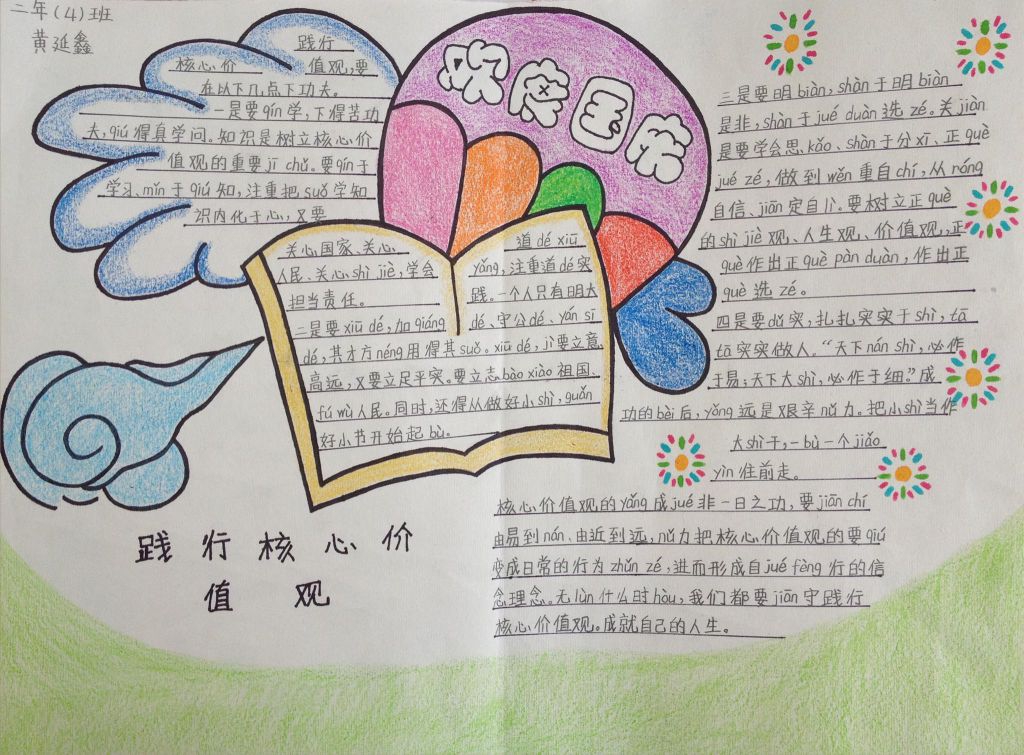 二年(4)班
黄延鑫
欢度国庆
践行
核心价 值观,要
在以下几点下功夫。
一是要qín学,下得苦功
夫,qiú得真学问。知识是树立核心价
值观的重要jī chǔ。要qín于
学习、mǐn于qiú知,注重把suǒ学知
识内化于心,又要
关心国家、关心
人民、关心shì jiè,学会
担当责任。
二是要xiū dé,加qiáng
道dé xiū
yǎng,注重道dé实
践。一个人只有明大
dé、守公dé、yán sī
dé,其才方néng用得其suǒ。xiū dé,jì要立意
高远,又要立足平实。要立志bào xiào祖国、
fú wù人民。同时,还得从做好小shì,guǎn
好小节开始起bù。
三是要明biàn,shàn于明biàn
是非,shàn于jué duàn选zé。关jiàn
是要学会思kǎo、shàn于分xī、正què
jué zé,做到wěn重自chí,从róng
自信、jiān定自li。要树立正què
的shì jiè观、人生观、价值观,正
què作出正què pàn duàn,作出正
què选zé。
四是要dǔ实,扎扎实实于shì,tā
tā实实做人。“天下nán shì,必作
于易;天下大shì,必作于细。”成
功的bèi后,yǒng远是艰辛nǔ力。把小shì当作
大shì干,一bù一个jiǎo
yìn往前走。
核心价值观的yǎng成jué非一日之功,要jiān chí
由易到nán、由近到远,nǔ力把核心价值观的要qiú
变成日常的行为zhǔn zé,进而形成自jué fèng行的信
念理念。无lùn什么时hòu,我们都要jiān守践行
核心价值观。成就自己的人生。
践行核心价
值观